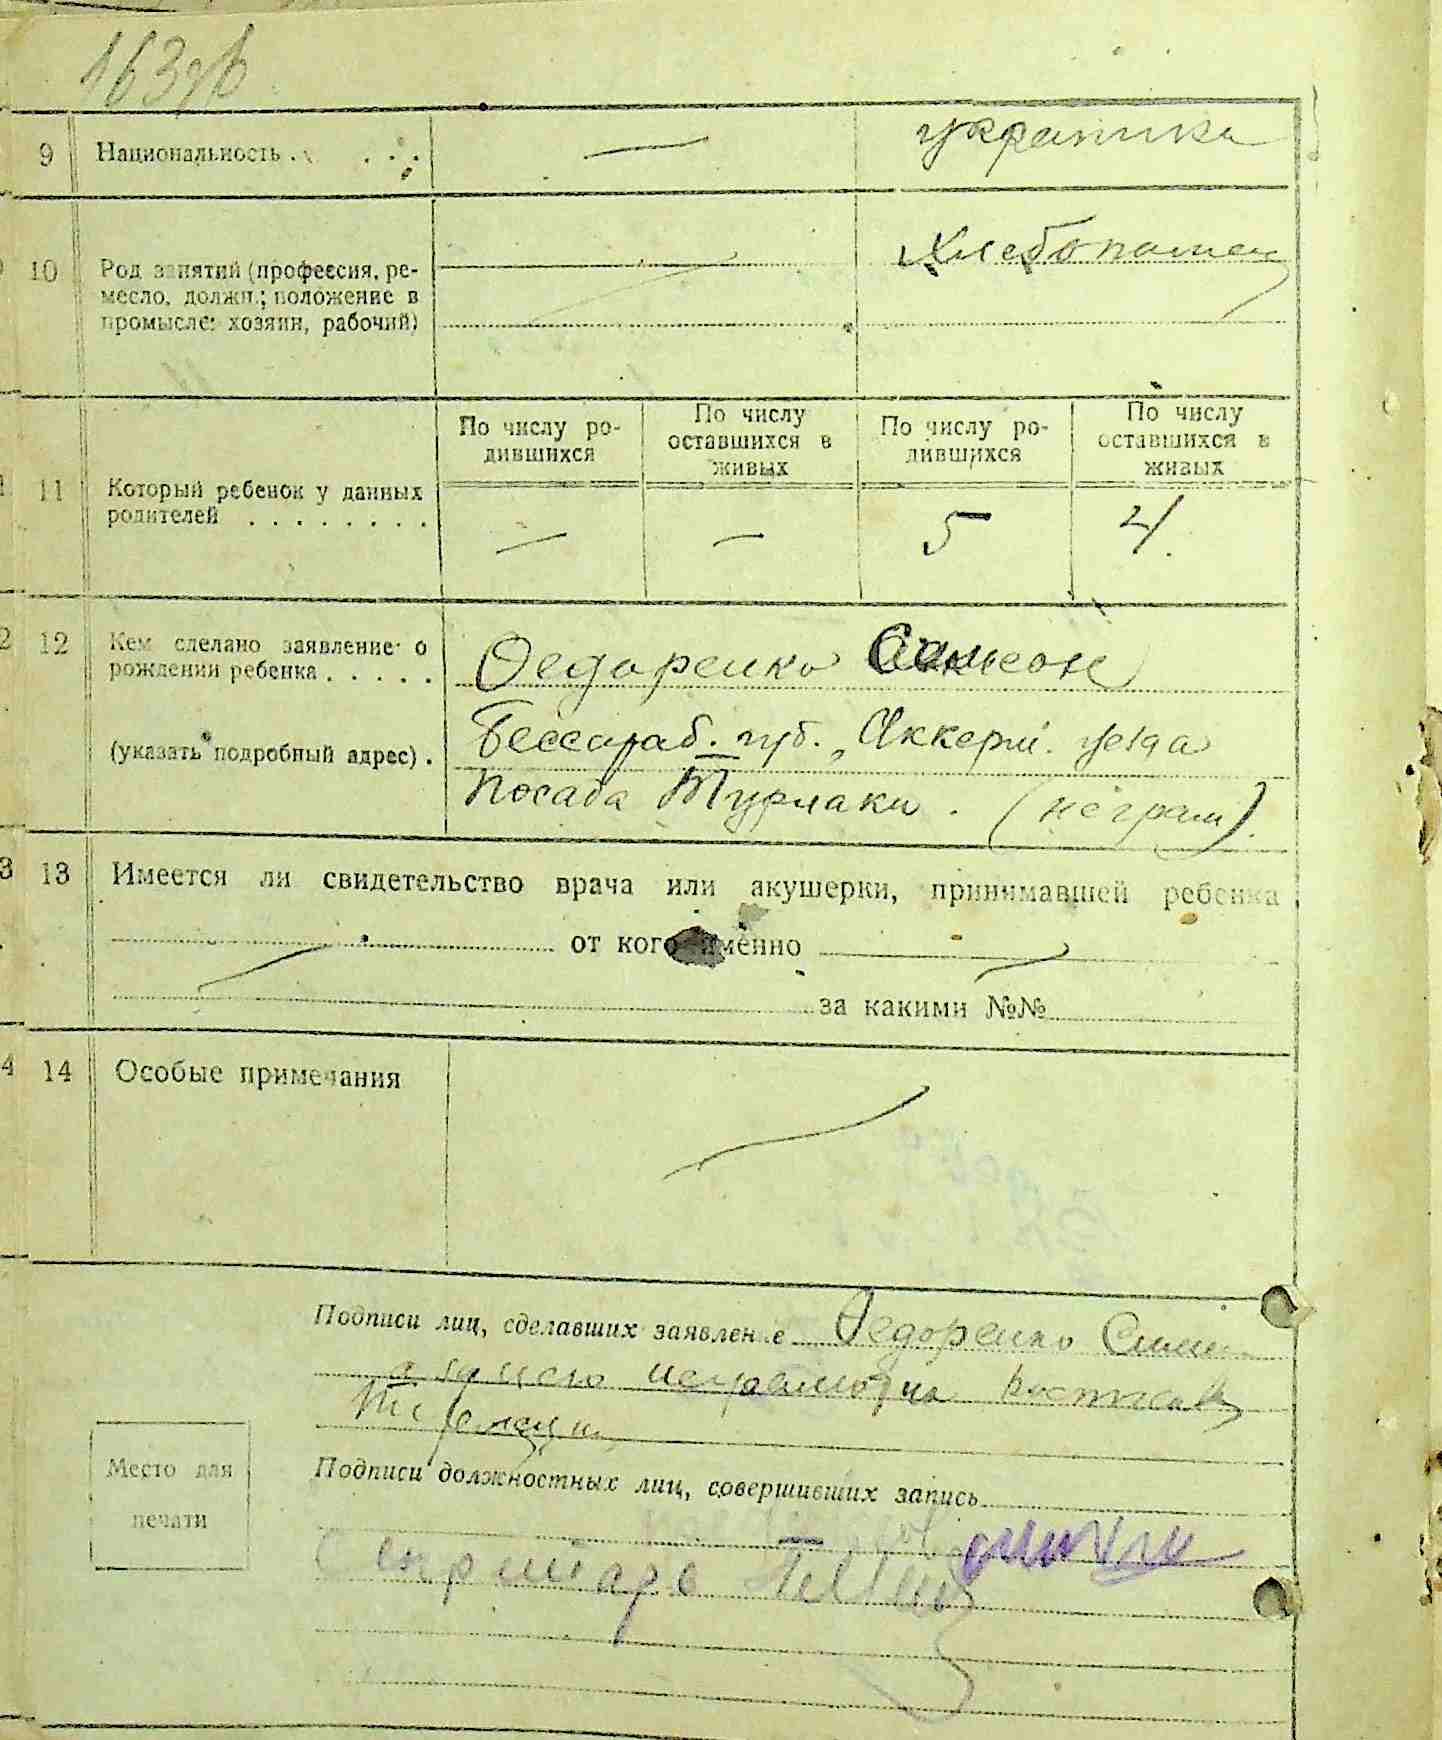 163
9 Национальность . . . . — украинка
10 Род занятий (профессия, ре-
месло, должн.; положение в
промысле: хозяин, рабочий)
Хлебопашец
По числу ро-
дившихся
По числу
оставшихся в
живых
По числу ро-
дившихся
По числу
оставшихся в
живых
11 Который ребенок у данных
родителей . . . . . . . .
— — 5 4
12 Кем сделано заявление о
рождении ребенка . . . . .
Федоренко
Бессараб. губ. Аккерм. уезда
(указать подробный адрес) .
Посада Турлаки . (неграм).
13 Имеется ли свидетельство врача или акушерки, принимавшей ребенка
от кого именно
за какими №№
14 Особые примечания
Подписи лиц, сделавших заявление Федоренко
неграмотна
Место для
печати
Подписи должностных лиц, совершивших запись
Секретарь